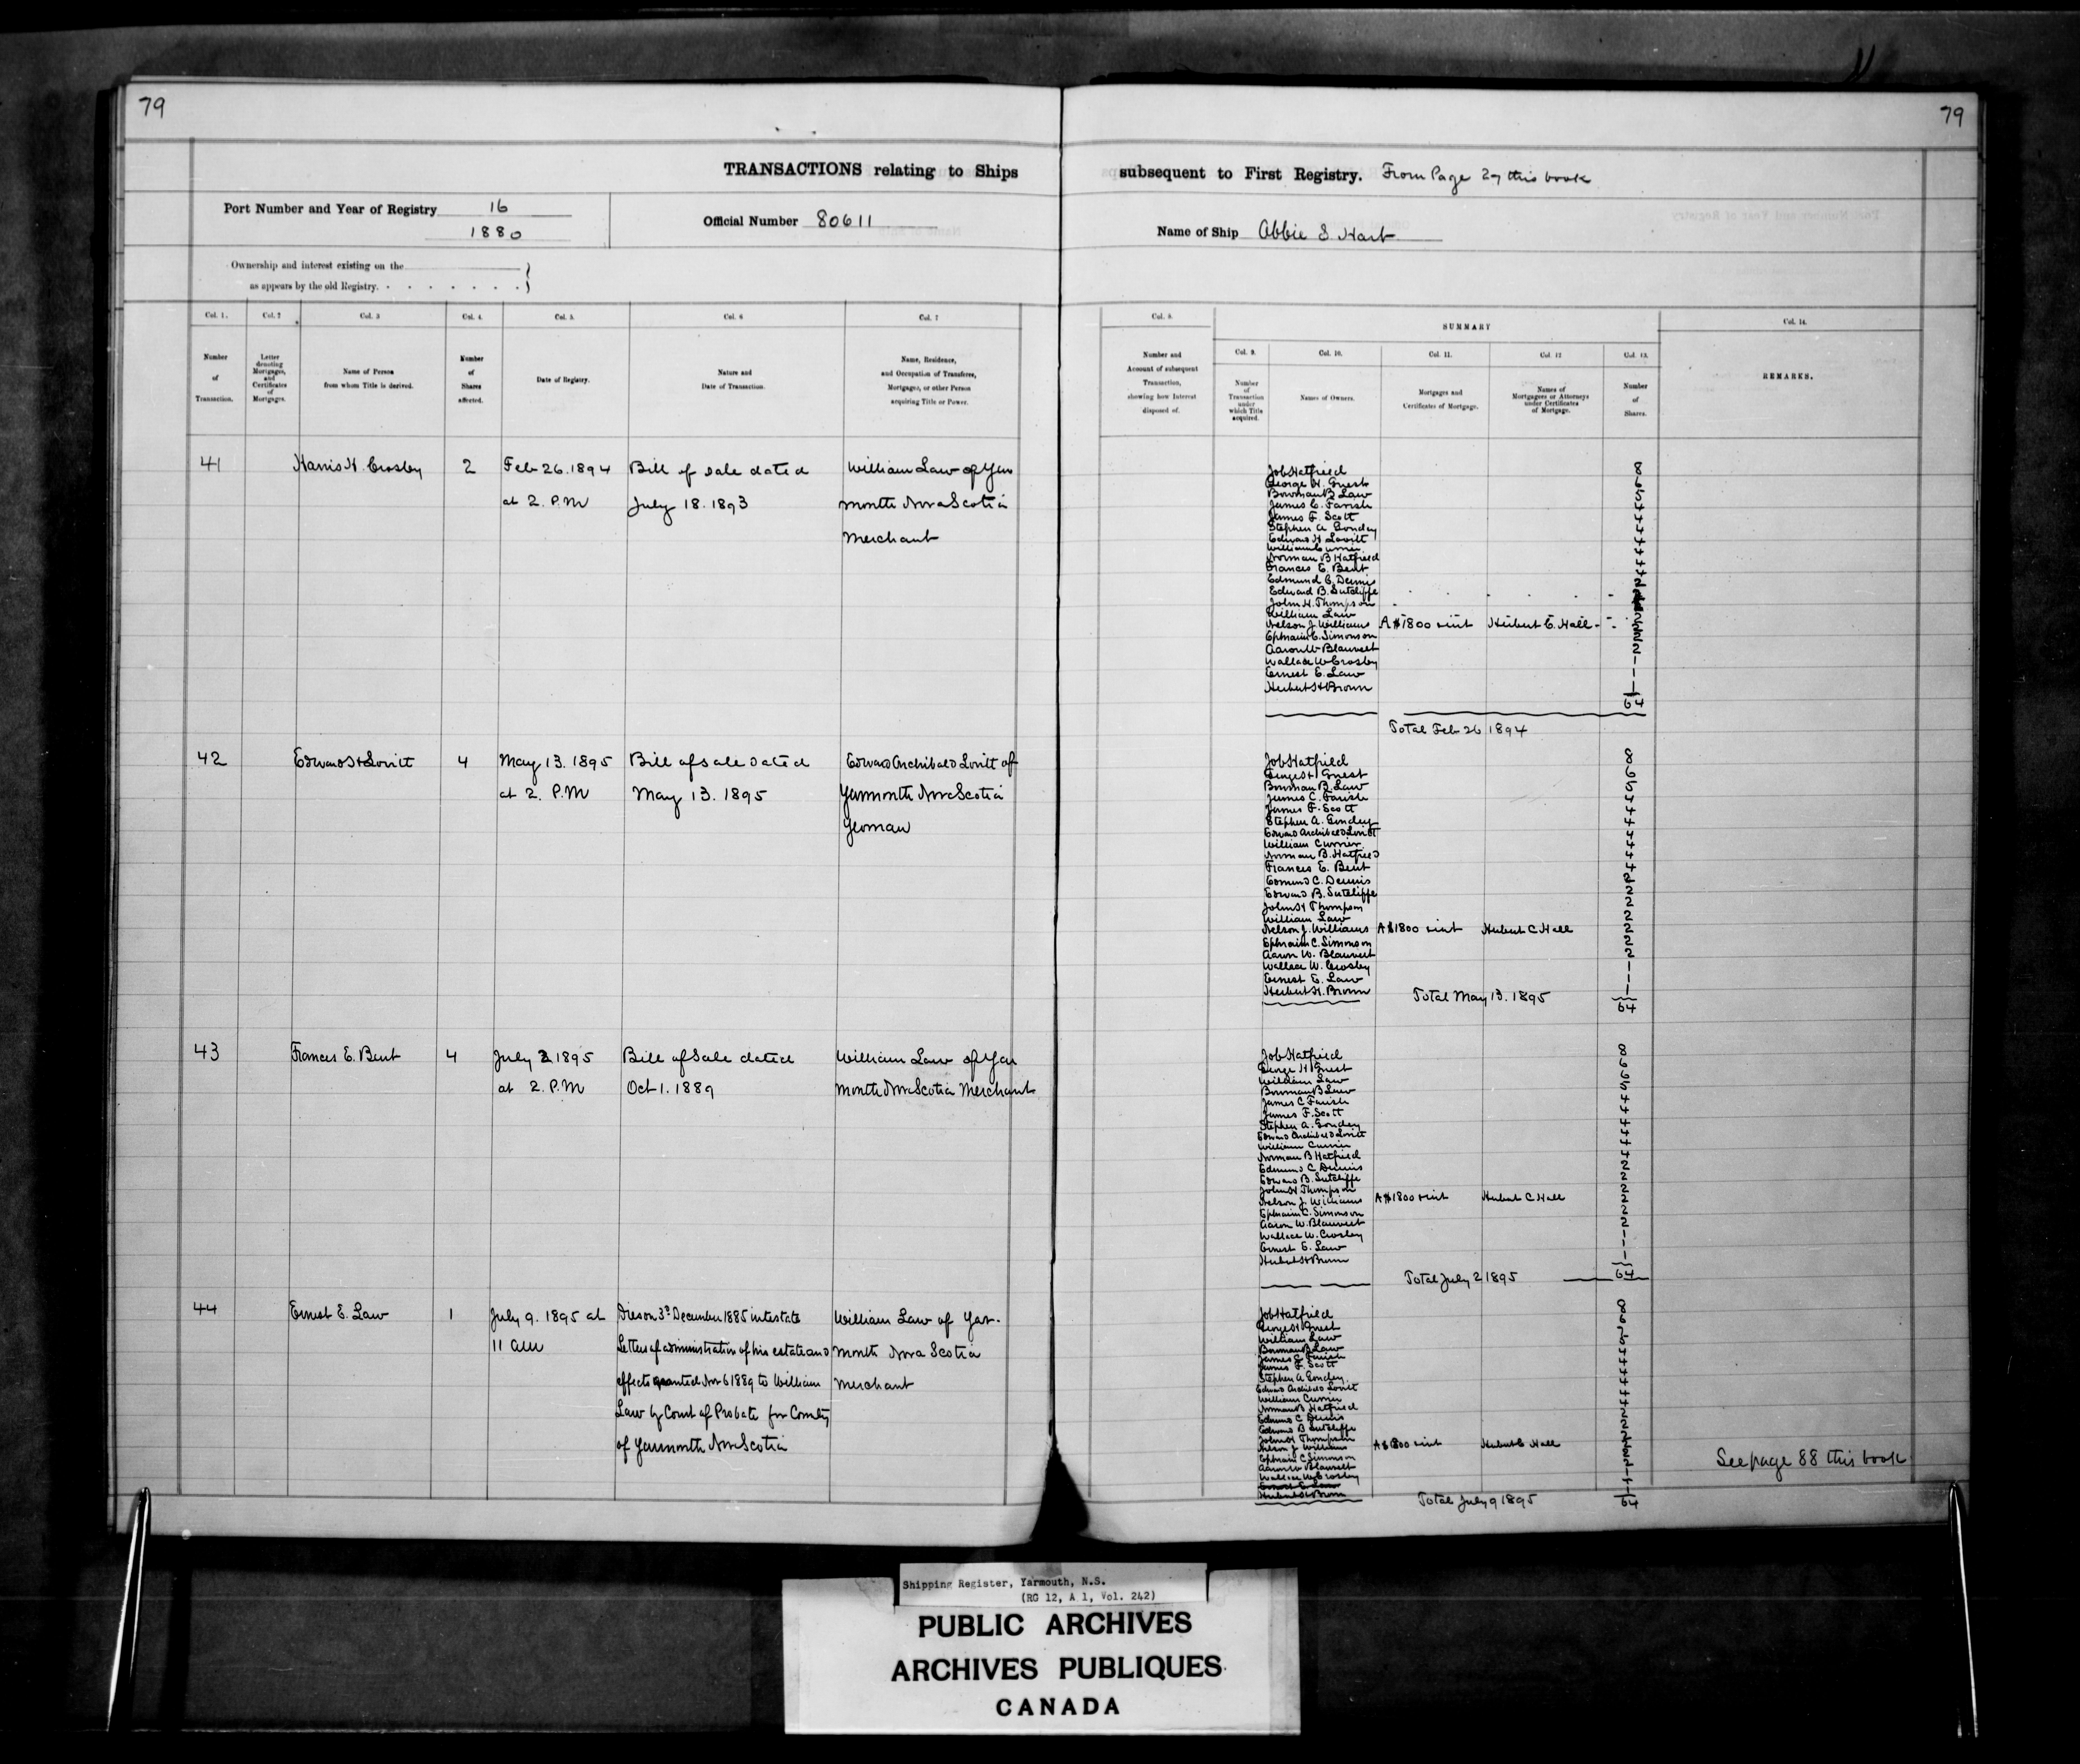 79
79
TRANSACTIONS relating to Ships
subsequent to First Registry. From Page 27 this book
Port Number and Year of Registry 16
1880
Official Number 80611
Name of Ship Abbie S Hart
Ownership and interest existing on the
as appears by the old Registry.
Col. 1.
Col. 2
Col. 3
Col. 4.
Col. 5.
Col. 6
Col. 7
Number of Transaction.
Letter denoting Mortgages, and Certificates of Mortgages.
Name of Person from whom Title is derived.
Number of Shares affected.
Date of Registry.
Nature and Date of Transaction.
Name, Residence, and Occupation of Transferee, Mortgagee, or other Person acquiring Title or Power.
Col. 8.
SUMMARY
Col. 14.
Col. 9.
Col. 10.
Col. 11.
Col. 12
Col. 13.
Number and Account of subsequent Transaction, showing how Interest disposed of.
Number of Transaction under which Title acquired.
Names of Owners.
Mortgages and Certificates of Mortgage.
Names of Mortgagees or Attorneys under Certificates of Mortgage.
Number of Shares.
REMARKS.
41 Harris H. Crosby 2 Feb 26. 1894 Bill of sale dated William Law of Yar
at 2. P.M July 18. 1893 mouth Nova Scotia
Merchant
Job Hatfield 8
George H. Guest 6
Bowman B Law 5
James C. Farish 4
James F. Scott 4
Stephen A Goudey 4
Edward H Lovitt 4
William Currier 4
Norman B Hatfield 4
Frances E. Bent 4
Edmund C. Dennis 2
Edward B. Sutcliffe
John H. Thompson
William Law
Nelson J. Williams A $1800 &int Hubert C. Hall
Ephraim C. Simonson 2
Aaron W Blauvelt 2
Wallace W Crosby 1
Ernest E. Law 1
Herbert H Brown 1
64
Total Feb 26 1894
42 Edward H Lovitt 4 May 13. 1895 Bill of sale dated Edward Archibald Lovitt of
at 2. P.M May 13. 1895 Yarmouth Nova Scotia
Yeoman
Job Hatfield 8
George H Guest 6
Bowman B. Law 5
James C. Farish 4
James F. Scott 4
Stephen A. Goudey 4
Edward Archibald Lovitt 4
William Currier 4
Norman B. Hatfield 4
Frances E. Bent 4
Edmund C. Dennis 2
Edward B. Sutcliffe 2
John H Thompson 2
William Law 2
Nelson J. Williams A $1800 &int Hubert C Hall 2
Ephraim C. Simonson 2
Aaron W. Blauvelt 2
Wallace W. Crosby 1
Ernest E. Law 1
Herbert H. Brown 1
Total May 13. 1895 64
43 Frances E. Bent 4 July 2 1895 Bill of Sale dated William Law of Yar
at 2. P.M Oct 1. 1889 mouth Nova Scotia Merchant
Job Hatfield 8
George H Guest 6
William Law 6
Bowman B Law 5
James C Farish 4
James F. Scott 4
Stephen A. Goudey 4
Edward Archibald Lovitt 4
William Currier 4
Norman B Hatfield 4
Edmund C Dennis 2
Edward B. Sutcliffe 2
John H Thompson 2
Nelson J. Williams A $1800 &int Hubert C Hall 2
Ephraim C. Simonson 2
Aaron W. Blauvelt 2
Wallace W. Crosby 1
Ernest E. Law 1
Herbert H Brown 1
Total July 2 1895 64
44 Ernest E. Law 1 July 9. 1895 at Died on 3d December 1885 intestate William Law of Yar-
11 am Letters of administration of his estate and mouth Nova Scotia
effects granted Nov 6 1889 to William Merchant
Law by Court of Probate for County
of Yarmouth Nova Scotia
Job Hatfield 8
George H Guest 6
William Law 7
Bowman B Law 5
James C Farish 4
James F. Scott 4
Stephen A Goudey. 4
Edward Archibald Lovitt 4
William Currier 4
Norman B Hatfield 4
Edmund C Dennis 2
Edward B Sutcliffe 2
John H Thompson 2
Nelson J Williams A $1800 &int Hubert C Hall 2
Ephraim C Simonson 2
Aaron W Blauvelt 2
Wallace W Crosby 1
Ernest E Law
Herbert H Brown 1
Total July 9 1895 64
See page 88 this book
Shipping Register, Yarmouth, N.S.
(RG 12, A 1, Vol. 242)
PUBLIC ARCHIVES
ARCHIVES PUBLIQUES
CANADA